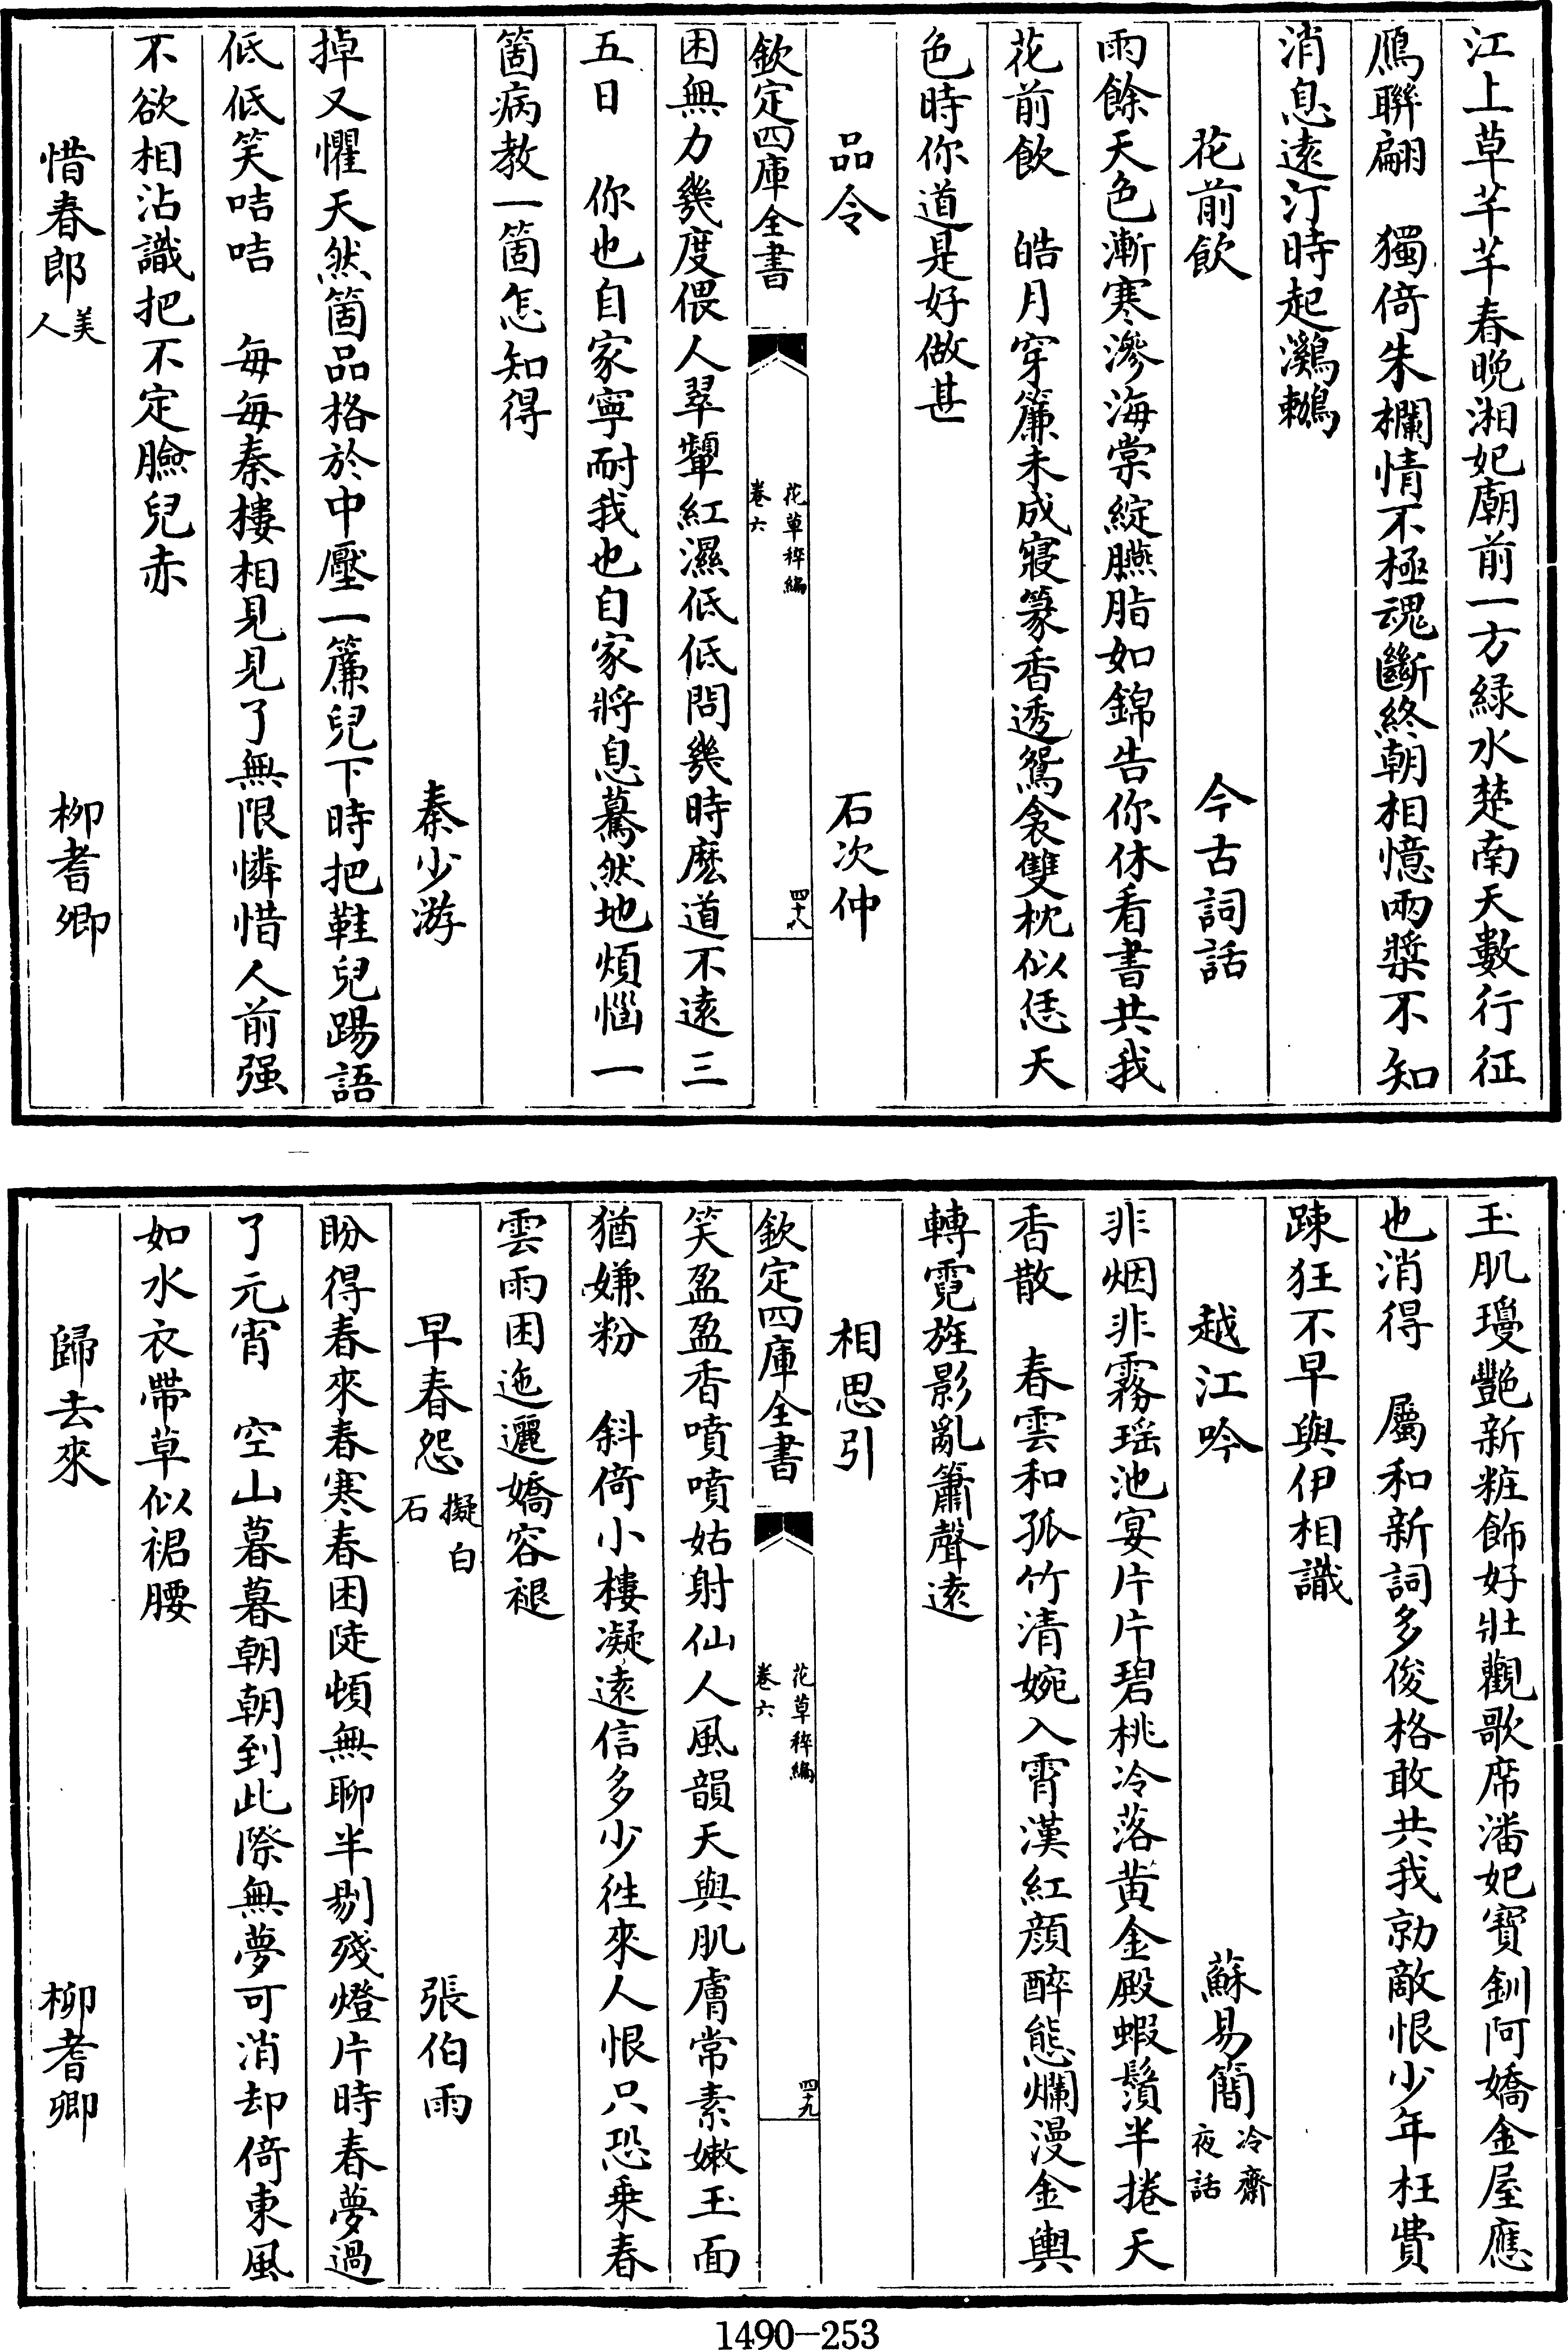 江上草芊芊春晚湘妃廟前一方緑水楚南天數行征
鴈聯翩　獨倚朱欄情不極魂斷終朝相憶兩槳不知
消息逺汀時起鸂鶒
花前飲　今古詞話
雨餘天色漸寒滲海棠綻臙脂如錦告你休看書共我
花前飲　皓月穿簾未成寢篆香透鴛衾雙枕似恁天
色時你道是好做甚
品令　石次仲
欽定四庫全書　花草稡編卷六　四十八
困無力幾度偎人翠顰紅濕低低問幾時麽道不逺三
五日　你也自家寧耐我也自家將息驀然地煩惱一
箇病教一箇怎知得
秦少游
掉又懼天然箇品格於中壓一簾兒下時把鞋兒踢語
低低笑咭咭　每每秦樓相見見了無限憐惜人前强
不欲相沾識把不定臉兒赤
惜春郎美人　柳耆卿
玉肌瓊艶新粧飾好壯觀歌席潘妃寶釧阿嬌金屋應
也消得　屬和新詞多俊格敢共我勍敵恨少年枉費
踈狂不早與伊相識
越江吟　蘇易簡冷齋夜話
非烟非霧瑶池宴片片碧桃冷落黄金殿蝦鬚半捲天
香散　春雲和孤竹清婉入霄漢紅顔醉態爛漫金輿
轉霓旌影亂簫聲逺
相思引
欽定四庫全書　花草稡編卷六　四十九
笑盈盈香噴噴姑射仙人風韻天與肌膚常素嫩玉面
猶嫌粉　斜倚小樓凝逺信多少徃來人恨只恐乗春
雲雨困迤邐嬌容褪
早春怨擬白石　張伯雨
盼得春來春寒春困陡頓無聊半剔殘燈片時春夢過
了元宵　空山暮暮朝朝到此際無夢可消却倚東風
如水衣帶草似裙腰
歸去來　柳耆卿
1490-253